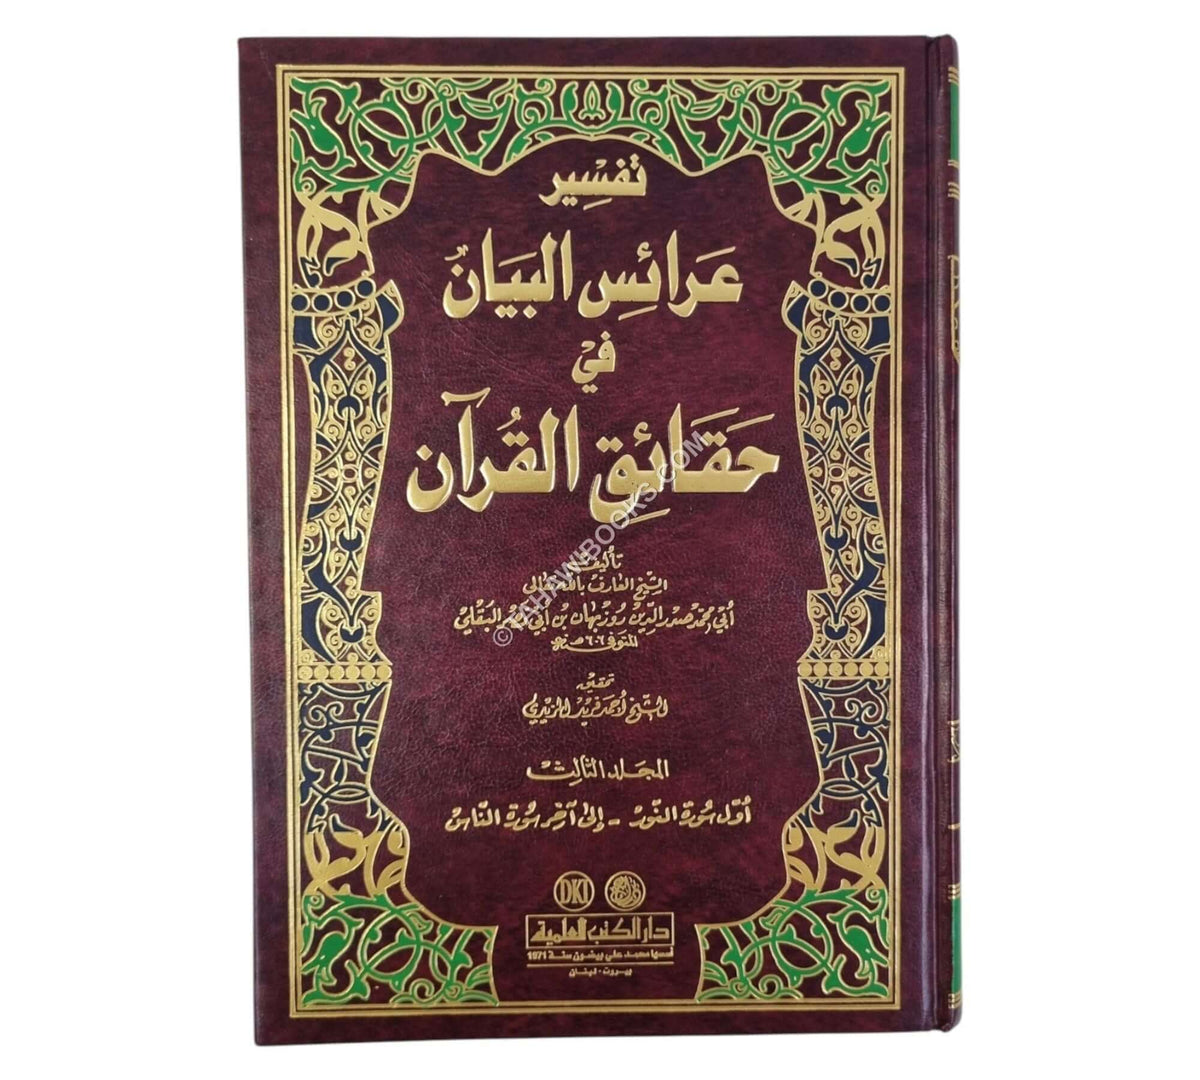 تفسير
عرائس البيان
في
حقائق القرآن
تأليف
الشيخ العارف بالله تعالى
أبي محمد صدر الدين روزبهان بن أبي نصر البقلي
المتوفى ٦٠٦ هـ
تحقيق
الشيخ أحمد فريد المزيدي
المجلد الثالث
أول سورة النور - إلى آخر سورة الناس
DKI
دار الكتب العلمية
أسسها محمد علي بيضون سنة 1971
بيروت - لبنان
© TAHAWIBOOKS.COM